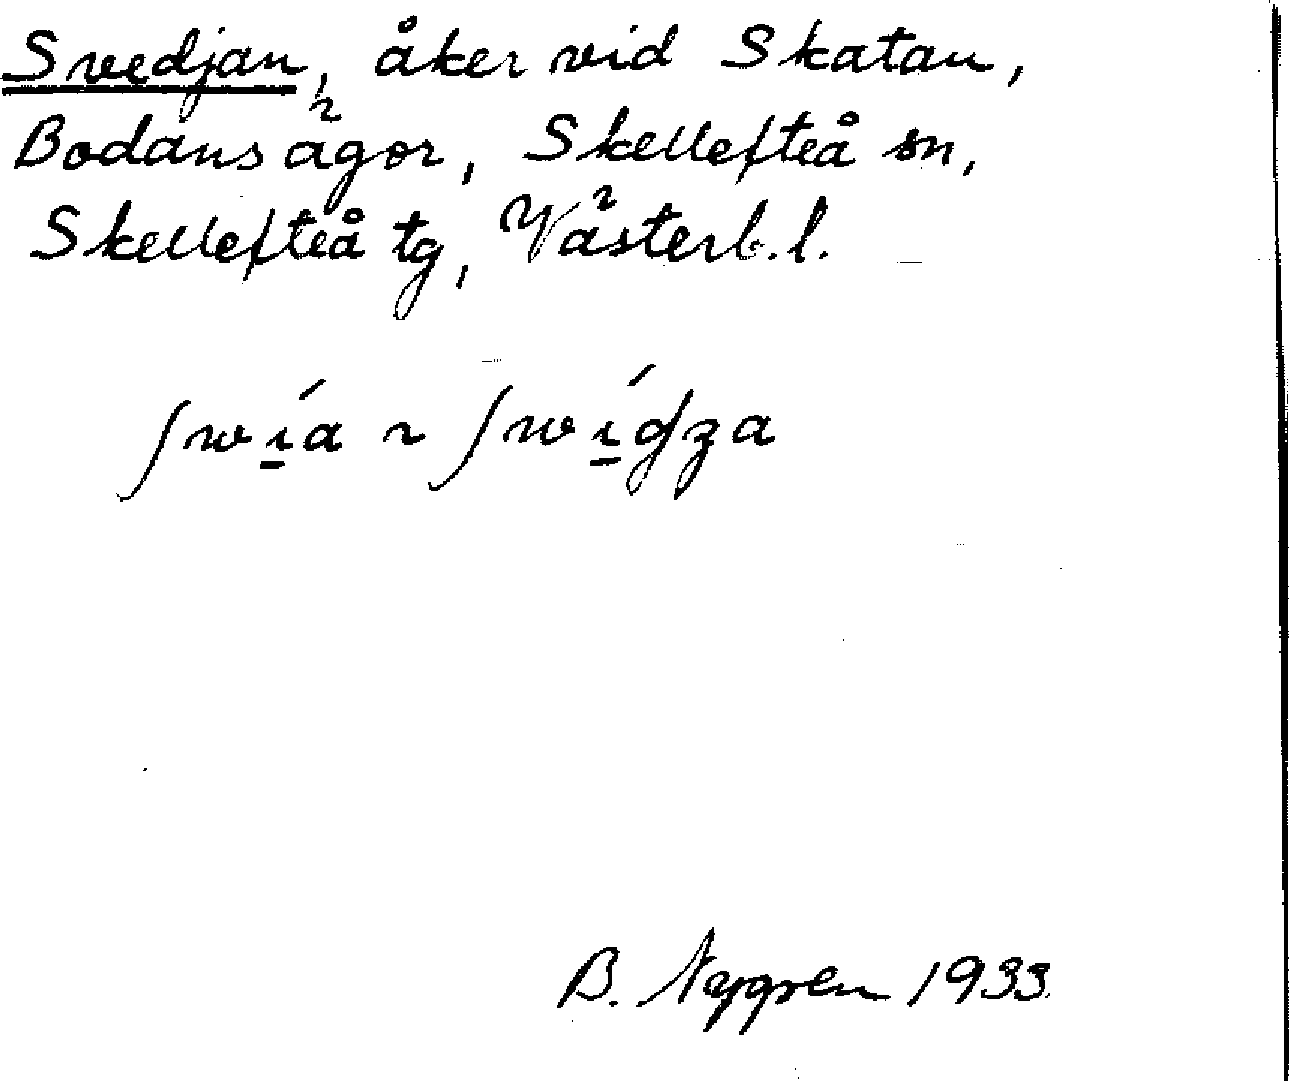 Svedjan, åker vid Skatan,
Bodans ägor, Skellefteå sn,
Skellefteå tg, Västerb. l.
B. Nygren 1933.